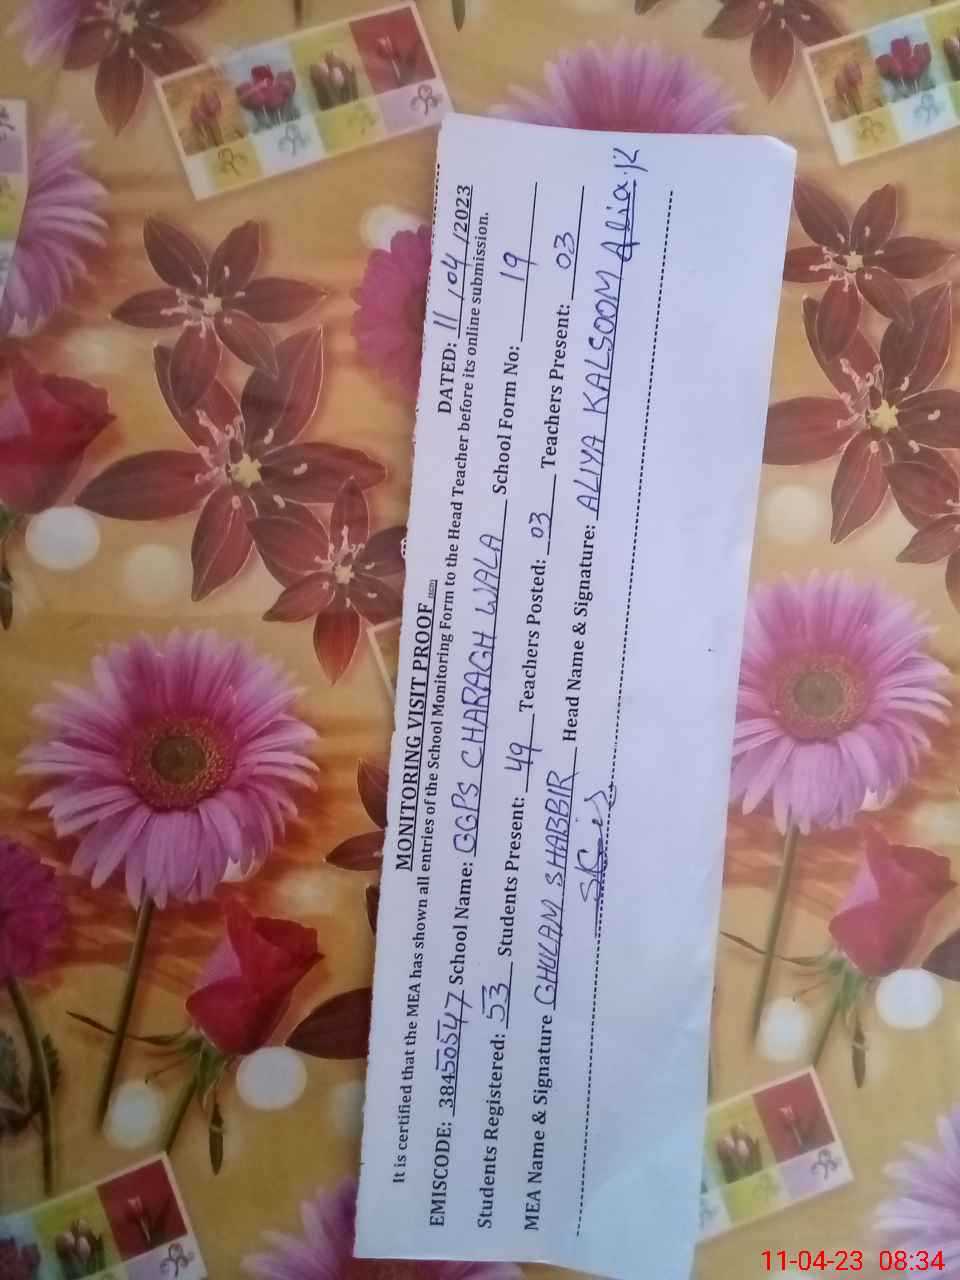 MONITORING VISIT PROOF
It is certified that the MEA has shown all entries of the School Monitoring Form to the Head Teacher before its online submission.
DATED: 11/04/2023
EMISCODE: 38450547 School Name: GGPS CHARAGH WALA School Form No: 19
Students Registered: 53 Students Present: 49 Teachers Posted: 03 Teachers Present: 03
MEA Name & Signature GHULAM SHABBIR Head Name & Signature: ALIYA KALSOOM Alia.K
11-04-23 08:34